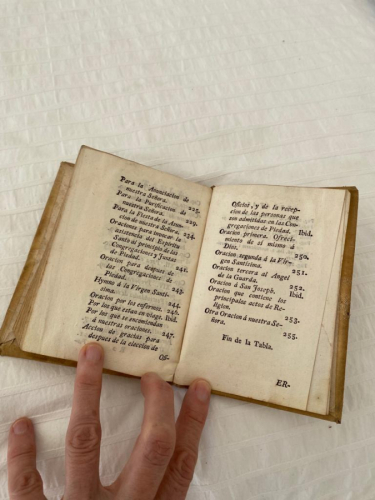 Para la Anunciacion de
nuestra Señora. 225.
Para la Purificacion de
nuestra Señora. 229.
Para la Fiesta de la Assun-
cion de nuestra Señora. 234.
Oraciones para invocar la
assistencia del Espiritu
Santo al principio de las
Congregaciones y Juntas
de Piedad. 240.
Oracion para despues de
las Congregaciones de
Piedad. 243.
Hymno á la Virgen Santi-
sima. 244.
Oracion por los enfermos. 246.
Por los que estan en viage. Ibid.
Por los que se encomiendan
á nuestras oraciones. 247.
Accion de gracias para
despues de la eleccion de
Of-
Oficios, y de la recep-
cion de las personas que
son admitidas en las Con-
gregaciones de Piedad. Ibid.
Oracion primera. Ofreci-
miento de sí mismo á
Dios. 250.
Oracion segunda á la Vir-
gen Santisima. 251.
Oracion tercera al Angel
de la Guarda. 252.
Oracion á San Joseph. Ibid.
Oracion que contiene los
principales actos de Re-
ligion. 253.
Otra Oracion á nuestra Se-
ñora. 255.
Fin de la Tabla.
ER-